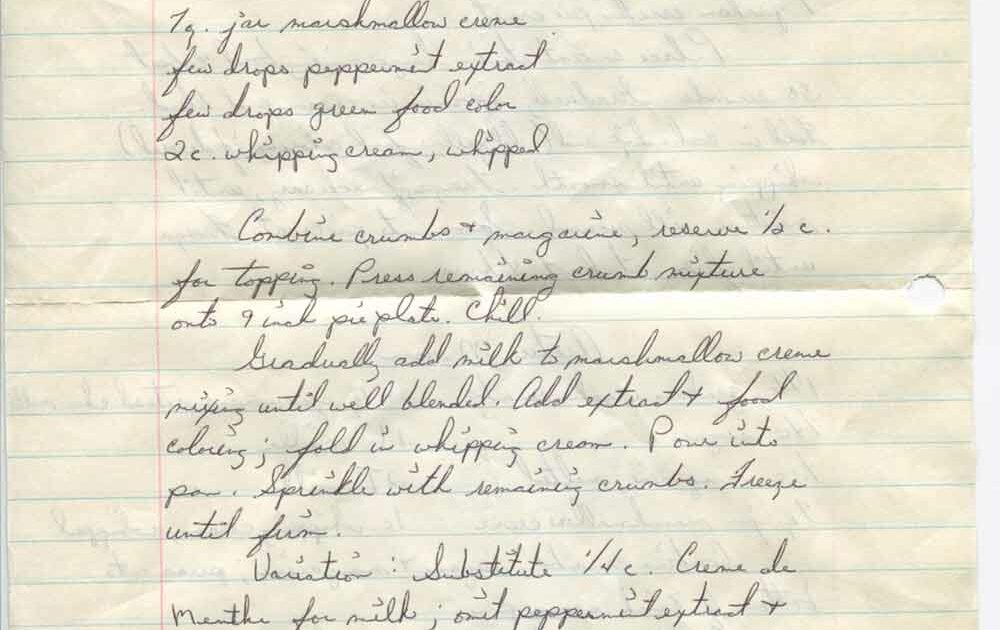 7 oz. jar marshmallow creme
few drops peppermint extract
few drops green food color
2 c. whipping cream, whipped
Combine crumbs + margarine, reserve 1/2 c.
for topping. Press remaining crumb mixture
onto 9 inch pie plate. Chill.
Gradually add milk to marshmallow creme
mixing until well blended. Add extract + food
coloring; fold in whipping cream. Pour into
pan. Sprinkle with remaining crumbs. Freeze
until firm.
Variation: Substitute 1/4 c. Creme de
Menthe for milk; omit peppermint extract +